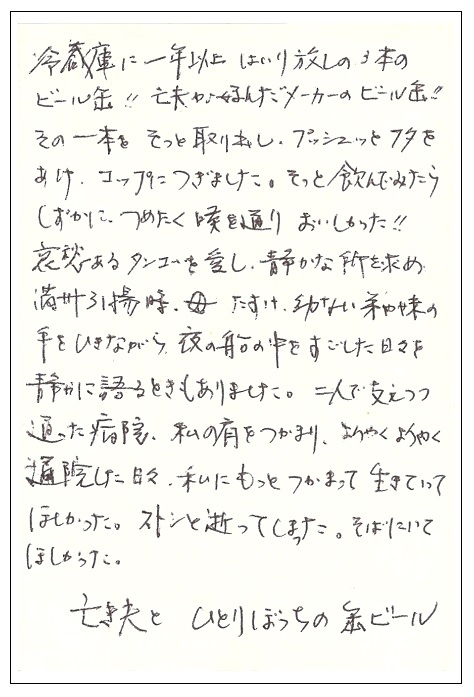 冷蔵庫に一年以上 はいり放しの3本の
ビール缶!! 亡夫が好んだメーカーのビール缶!!
その一本を そっと取り出し、プッシュッと フタを
あけ、コップにつぎました。そっと飲んでみたら
しずかに、つめたく 喉を通り おいしかった!!
哀愁ある タンゴを愛し、静かな所を求め
満州引揚時、母 たすけ、幼ない弟や妹の
手をひきながら 夜の船の中をすごした日々を
静かに語るときもありました。二人で支えつつ
通った病院、私の肩をつかまり、ようやくようやく
通院した日々、私にもっと つかまって 生きていって
ほしかった。ストンと逝ってしまった。そばにいて
ほしかった。
亡き夫と ひとりぼっちの 缶ビール